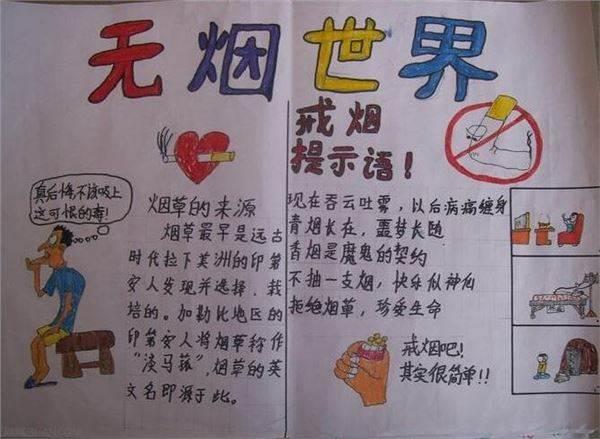 无烟世界
戒烟
提示语！
真后悔不该吸上
这可恨的毒！
烟草的来源
烟草最早是远古
时代拉丁美洲的印第
安人发现并选择、栽
培的。加勒比地区的
印第安人将烟草称作
“淡马菰”，烟草的英
文名即源于此。
现在吞云吐雾，以后病痛缠身
青烟长在，噩梦长随
香烟是魔鬼的契约
不抽一支烟，快乐似神仙
拒绝烟草，珍爱生命
戒烟吧！
其实很简单！！